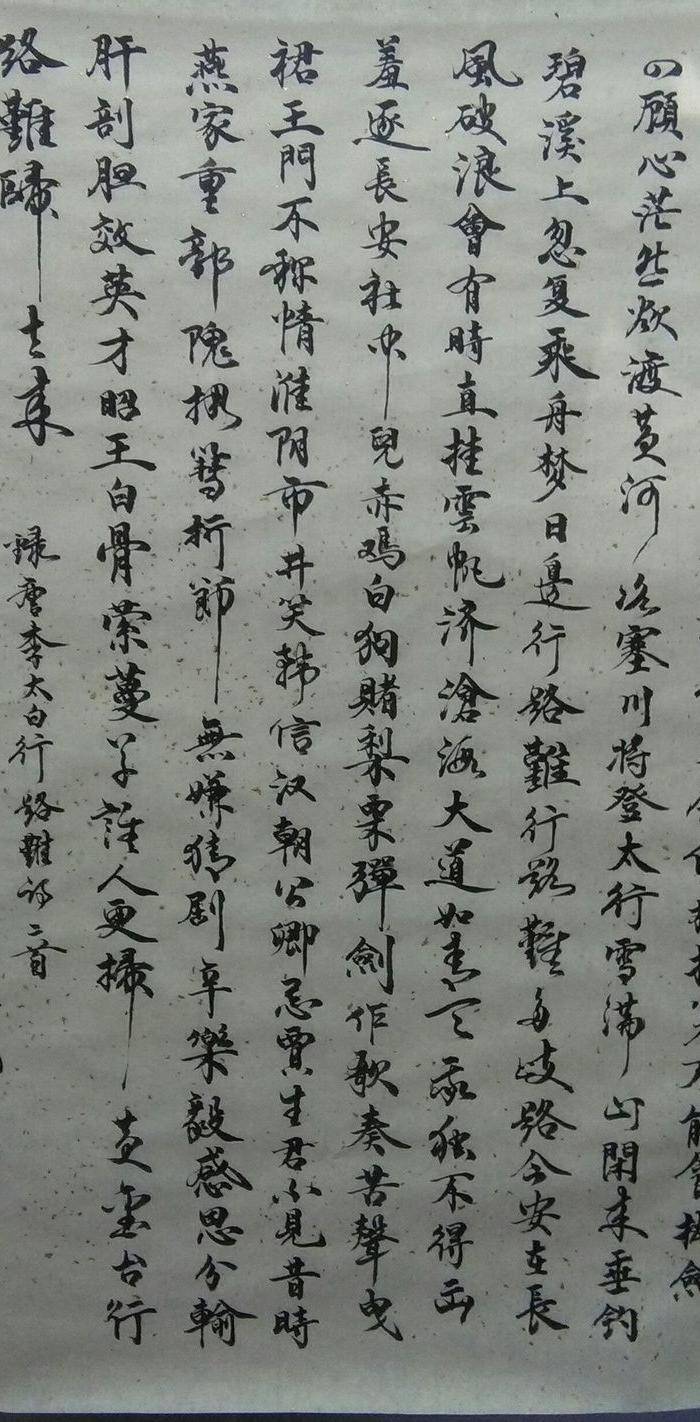 前食拔劍
四顧心茫然欲渡黃河冰塞川將登太行雪滿山閑來垂釣
碧溪上忽复乘舟梦日邊行路難行路難多歧路今安在長
風破浪會有時直挂雲帆济滄海大道如青天我独不得出
羞逐長安社中兒赤鸡白狗賭梨栗彈劍作歌奏苦聲曳
裾王門不称情淮阴市井笑韩信汉朝公卿忌賈生君不見昔時
燕家重郭隗拥篲折節無嫌猜剧辛樂毅感思分輸
肝剖胆效英才昭王白骨縈蔓草誰人更掃黄金台行
路難歸去来
錄唐李太白行路難詩二首